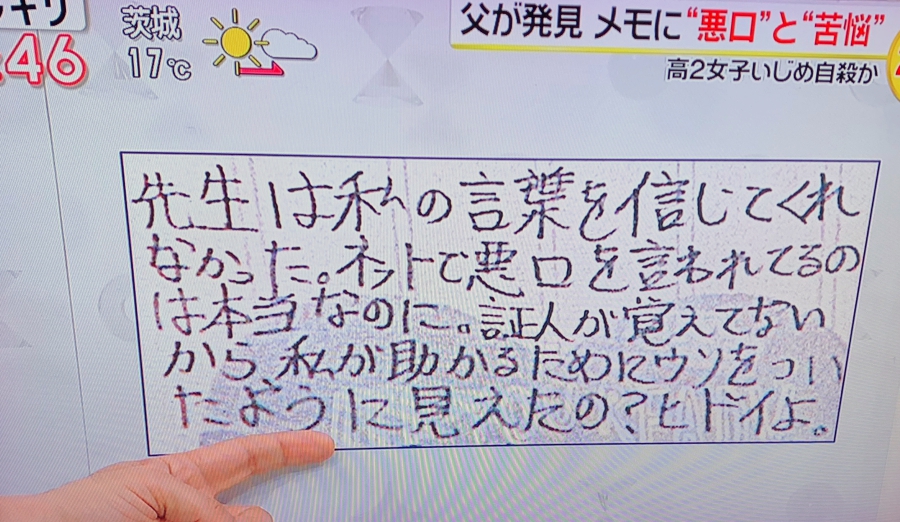 キリ
:46
茨城
17℃
父が発見 メモに“悪口”と“苦悩”
高2女子いじめ自殺か
先生は私の言葉を信じてくれ
なかった。ネットで悪口を言われてるの
は本当なのに。証人が覚えてない
から私が助かるためにウソをつい
たように見えたの?ヒドイよ。